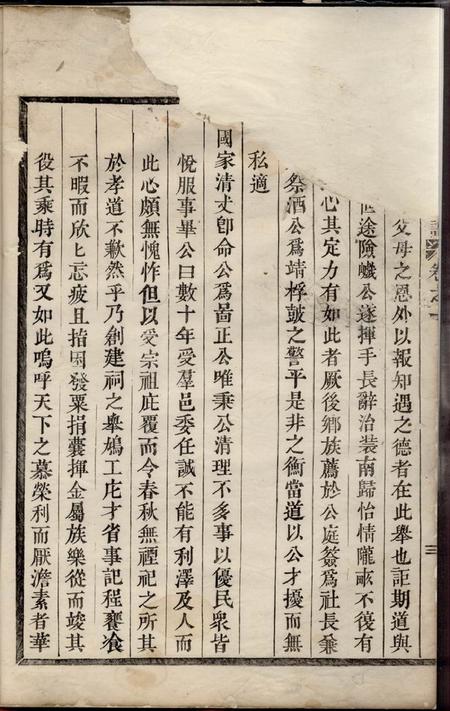 父母之恩外以報知遇之德者在此舉也詎期道與
途險巇公遂揮手長辭治裝南歸怡情隴畝不復有
心其定力有如此者厥後鄉族薦於公庭簽爲社長兼
祭酒公爲靖桴鼓之警平是非之衡當道以公才擾而無
私適
國家清丈卽命公爲啚正公唯秉公清理不多事以優民衆皆
悅服事畢公曰數十年受羣邑委任誠不能有利澤及人而
此心頗無愧怍但以受宗祖庇覆而令春秋無禋祀之所其
於孝道不歉然乎乃創建祠之舉鳩工庀才省事記程饔飧
不暇而欣匕忘疲且指囷發粟捐囊揮金屬族樂從而竣其
役其乘時有爲又如此嗚呼天下之慕榮利而厭澹素者華
卷之
三